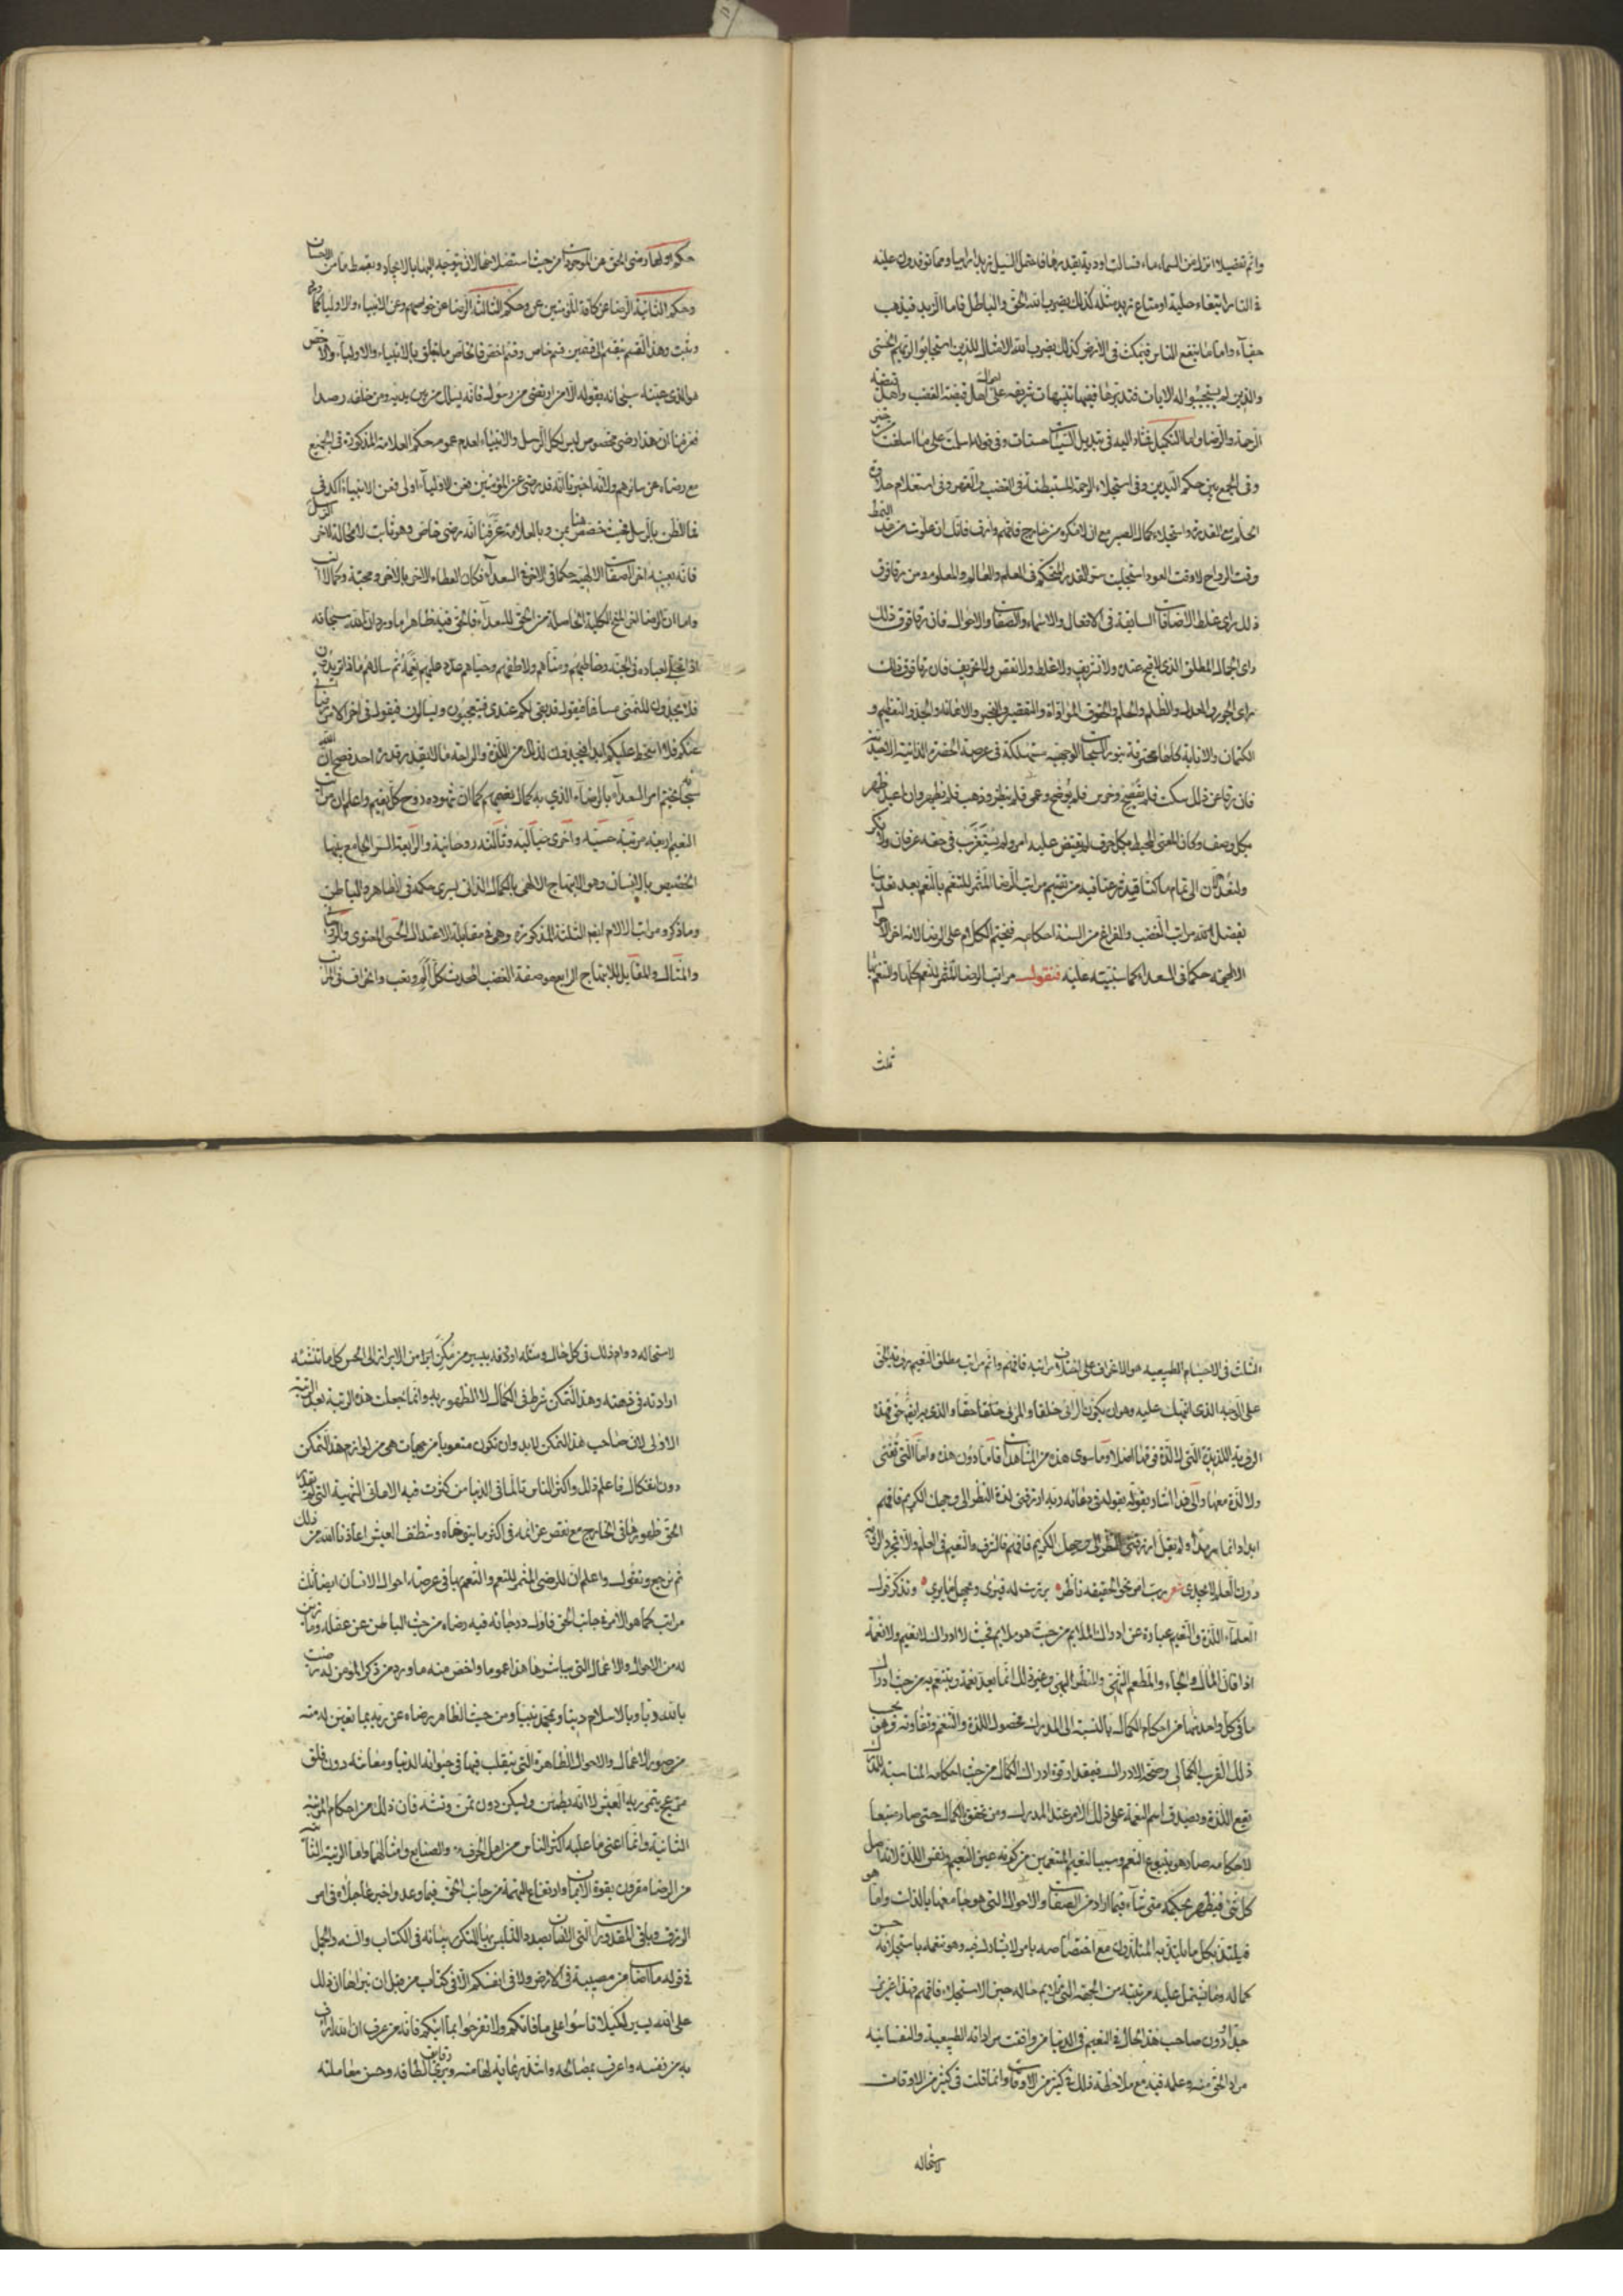 واتم تفصيلا انزل من السماء ماء فسالت اودية بقدرها فاحتمل السيل زبدا رابيا ومما توقدون عليه
في النار ابتغاء حلية او متاع زبد مثله كذلك يضرب الله الحق والباطل فاما الزبد فيذهب
جفاء واما ما ينفع الناس فيمكث في الارض كذلك يضرب الله الامثال للذين استجابوا لربهم الحسنى
والذين لم يستجيبوا له الايات فتدبرها ففيها تنبيهات شريفة على اهل قبضة الغضب واهل قبضة
الرحمة والرضا واما التكميل في تبديل السيئات حسنات وفي قوله اسلمت على ما اسلفت من خير
وفي الجمع بين حكم اليدين وفي استجلاء الرحمة المستبطنة في الغضب والقهر وفي استعلام حلاوة
الحلم مع القدرة واستجلاء كمال الصبر مع ان لا مكره من خارج فافهم وارق فانك ان علوت من هذا النمط
وقت الرواح لا وقت العود استجليت سر القدر المتحكم في العلم والعالم والمعلوم ومن رقا فوق
ذلك راى غلط الاضافات السابقة في الافعال والاسماء والصفات والاحوال فان رقا فوق ذلك
راى الجمال المطلق الذي لا قبح عنده ولا تزييف ولا غلط ولا نقص ولا تحريف فان رقا فوق ذلك
راى الجور والعدل والظلم والحلم والحقوق الموافاة والتقصير والغبن والاهانة والجد والتعظيم و
الكتمان والابانة كلها محترقة بنور السبحات الوجهية مستهلكة في عرصة الحضرة الذاتية الاحدية
فان رقا عن ذلك سكت فلم يفصح وخرس فلم يوضح وعمي فلم ينظر وذهب فلم يظهر وان اعيد ظهر
بكل وصف وكان المعنى المحيط بكل حرف لم يعتص عليه امر ولم يستغرب في حقه عرفان ولا نكر
ولنعد الان الى تمام ما كنا قد شرعنا فيه من تقسيم مراتب الرضا المثمر للتنعم بالنعم بعد تقديمنا
تفصيل مراتب الغضب والفراغ من السنة احكامه فنختم الكلام على الرضا لانه اخر الاحوال
الالهية حكما في السعداء كما سننبه عليه فنقول مراتب الرضا المثمر للنعم كلها والتنعم بها
ثلث
حكم اولها رضى الحق عن الموجودات من حيث استصلاحها لان يتوجه اليها بالايجاد وبقسط ما من الاحسان
وحكم الثانية الرضا عن كافة المؤمنين وحكم الثالثة الرضا عن خواصهم وعن الانبياء والاولياء كما ورد
وثبت وهذا القسم ينقسم الى قسمين قسم خاص وقسم اخص فالخاص ما يتعلق بالانبياء والاولياء والاخص
هو الذي عينه سبحانه بقوله الا من ارتضى من رسول فانه يسلك من بين يديه ومن خلفه رصدا
فعرفنا ان هذا رضى مخصوص ليس لكل الرسل والانبياء لعدم عموم حكم العلامة المذكورة في الجميع
مع رضاه عن سائرهم ولانه اخبرنا انه قد رضي عن المؤمنين فعن الاولياء اولى فعن الانبياء اكد في
فما الظن بالرسل فحيث خصص هنا بمن وبالعلامة عرفنا انه رضى خاص وهو ثابت لا محالة لاخر الرسل
فانه بعينه اخر الصفات الالهية حكما في الاخرة في السعداء فكان العطاء الاخر بالاخر ومحبة وكمالات
واما ان الرضا انتج المنح الكلية الحاصلة من الحق للسعداء فالحق فيه ظاهر ما ورد ان الله سبحانه
اذا تجلى لعباده في الجنة وخاطبهم ومناهم ولاطفهم وحياهم عدد عليهم نعمه ثم سالهم ماذا تريدون
فلا يجدون للتمني مساغا فيقول قد بقي لكم عندي فيتعجبون ويسالون فيقول في اخر الامر رضائي
عنكم فلا اسخط عليكم ابدا فيجدون لذلك من اللذة والراحة ما لا يقدر قدره احد فصح ان الله
سبحانه يختم امر السعداء بالرضاء الذي به كمال نعيمهم كما ان شهوده روح كل نعيم واعلم ان مراتب
النعيم اربعة مرتبة حسية واخرى خيالية وثالثة روحانية والرابعة السر الجامع بينها
الخصيص بالانسان وهو الابتهاج الالهي بالكمال الذاتي يسري حكمه في الظاهر والباطن
وما ذكر ومراتب الالام ايضا الثلثة المذكورة وهي في مقابلة الاعتدال الحسي المعنوي والروحاني
والمثالي والمقابل للابتهاج الرابع هو صفة الغضب المحدث كل الم وتعب وانحراف في المراتب
الثلث في الاجسام الطبيعية هو الانحراف على اختلاف مراتبه فافهم واتم مراتب مطلق النعيم رؤية الحق
على الوجه الذي انبهك عليه وهو ان يكون الرائي خلقا والمرئي حقا والذي يرى به حق فهذه
الرؤية اللذيذة التي لا لذة فوقها اصلا وما سوى هذه من المشاهدات فاما دون هذه واما التي تفنى
ولا لذة معها والى هذا اشار بقوله في دعائه ربه ارزقني لذة النظر الى وجهك الكريم فافهم
ابدا دائما سرمدا ولم يقل ارزقني النظر الى وجهك الكريم فافهم فالشرف والنعيم في العلم والا فمجرد الرؤية
دون العلم لا يجدي شعر رب امرئ نحو الحقيقة ناظر برزت له فيرى ويجهل ما يرى وتذكر قول
العلماء اللذة والنعيم عبارة عن ادراك الملايم من حيث هو ملايم فحيث لا ادراك لا نعيم ولا نعمة
اذا فان المال والجاه والمطعم الشهي والمنظر البهي وغير ذلك انما يعد نعمة ويتنعم به من حيث ادراك
ما في كل واحد منها من احكام الكمال بالنسبة الى المدرك فحصول اللذة والتنعم وتفاوته فوق بحسب
ذلك القرب الكمالي وصحة الادراك فبقدر قوة ادراك الكمال من حيث احكامه المناسبة للمدرك
تقع اللذة ويصدق اسم النعمة على ذلك الامر عند المدرك ومن تحقق بالكمال حتى صار منبعا
لاحكامه صار هو ينبوع النعم وسبب النعيم المتنعمين من كونه عين النعيم ونفس اللذة لانه اصل
كل شيء فيظهر بحكمه متى شاء فيما اراد من الصفات والاحوال التي هو جامعها بالذات واما هو
فيلتذ بكل ما يلتذ به المتلذذون مع اختصاصه بامور لا يشارك فيه وهو تنعمه باستجلائه حسن
كماله وما يشتمل عليه مرتبته من الجهة التي تلايم حاله حين الاستجلاء فافهم فهذا عزيز
جدا ودون صاحب هذا الحال في النعيم في الدنيا من وافقت مراداته الطبيعية والنفسانية
مراد الحق منه وعلمه فيه مع ملاحظة ذلك في كثير من الاوقات وانما قلت في كثير من الاوقات
لاستحالة
لاستحالة دوام ذلك في كل حال ومثله اوقد بيسير من تمكن ابراز من الابراز الى الحس كل ما تنشئه
ارادته في ذهنه وهذا التمكن شرط في الكمال لا الظهور به وانما جعلت هذه الرتبة بعد الرتبة
الاولى لان صاحب هذا التمكن لا بد وان تكون متعوبا من جهات هي من لوازم هذا التمكن
دون انفكاك فاعلم ذلك واكثر الناس تالما في الدنيا من كثرت فيه الاماني الشهية التي لم يقدر
الحق ظهورها في الخارج مع نقص عزائمه في اكثر ما يتوخاه وشظف العيش اعاذنا الله من ذلك
ثم نرجع ونقول واعلم ان للرضى المثمر للنعم والتنعم بها في عرصة احوال الانسان ايضا ثلث
مراتب كما هو الامر في جانب الحق فاول درجاته فيه رضاه من حيث الباطن عن عقله وما زين
له من الاحوال والاعمال التي يباشرها هذا عموما واخص منه ما ورد من ذكر المؤمن انه رضيت
بالله ربا وبالاسلام دينا وبمحمد نبيا ومن حيث الظاهر رضاه عن ربه بما تعين له منه
من صور الاعمال والاحوال الظاهرة التي يتقلب فيها في حيوانه الدنيا ومعاشه دون قلق
مزعج يتمرر به العيش لا انه يطمئن ويسكن دون تمن وتشه فان ذلك من احكام المرتبة
الثانية وانما اعني ما عليه اكثر الناس من اهل الحرف والصنايع وامثالها واما الرتبة الثانية
من الرضا مقرون بقوة الايمان وارتفاع التهمة من جانب الحق فيما وعد واخبر عاجلا في امر
الرزق وباقي المقدورات التي اللسان بصدد التلبس بها المتكرر بيانه في الكتاب والسنة والمجمل
في قوله ما اصاب من مصيبة في الارض ولا في انفسكم الا في كتاب من قبل ان نبراها ان ذلك
على الله يسير لكيلا تاسوا على ما فاتكم ولا تفرحوا بما اتيكم فانه من عرف ان الله اراف
به من نفسه واعرف بمصالحه واشد رعاية لها منه ويرى دقايق الطافه وحسن معاملته